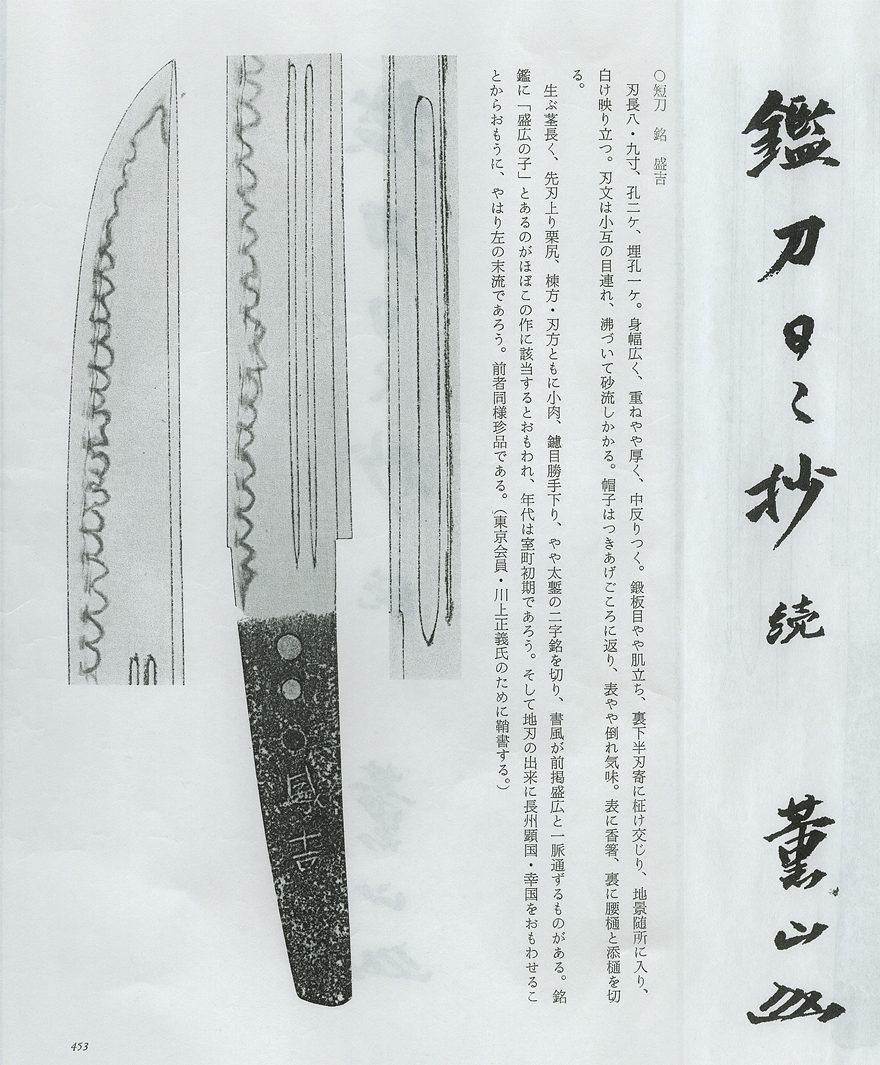 鑑刀日々抄 続
薫山
○短刀 銘 盛吉
刃長八・九寸、孔二ケ、埋孔一ケ。身幅広く、重ねやや厚く、中反りつく。鍛板目やや肌立ち、裏下半刃寄に柾け交じり、地景随所に入り、
白け映り立つ。刃文は小互の目連れ、沸づいて砂流しかかる。帽子はつきあげごころに返り、表やや倒れ気味。表に香箸、裏に腰樋と添樋を切
る。
生ぶ茎長く、先刃上り栗尻、棟方・刃方ともに小肉、鑢目勝手下り、やや太鏨の二字銘を切り、書風が前掲盛広と一脈通ずるものがある。銘
鑑に「盛広の子」とあるのがほぼこの作に該当するとおもわれ、年代は室町初期であろう。そして地刃の出来に長州顕国・幸国をおもわせるこ
とからおもうに、やはり左の末流であろう。前者同様珍品である。（東京会員・川上正義氏のために鞘書する。）
盛吉
453